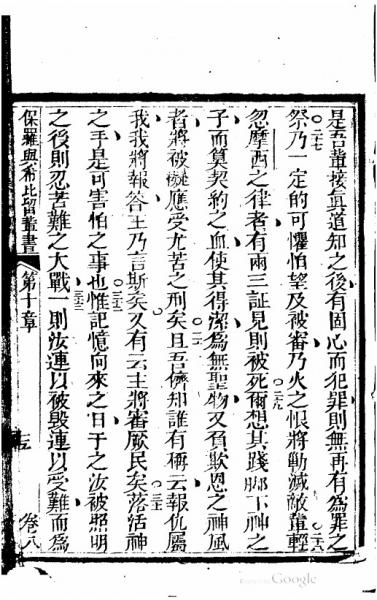 是吾輩接眞道知之後有固心而犯罪則無再有爲罪之
○二七
祭乃一定的可懼怕望及被審乃火之恨將勦滅敵輩輕
○二八
忽摩西之律者有兩三証見則被死爾想其踐脚下神之
○二九
子而算契約之血使其得潔爲無聖物又負欺恩之神風
者將被擬應受尤苦之刑矣且吾儕知誰有稱云報仇屬
○三十
我我將報答主乃言斯矣又有云主將審厥民矣落活神
○三一
之手是可害怕之事也惟記憶向來之日于之汝被照明
○三二
之後則忍者難之大戰一則汝連以被毀連以受難而爲
保羅與希比留輩書 第十章 卷八
Google